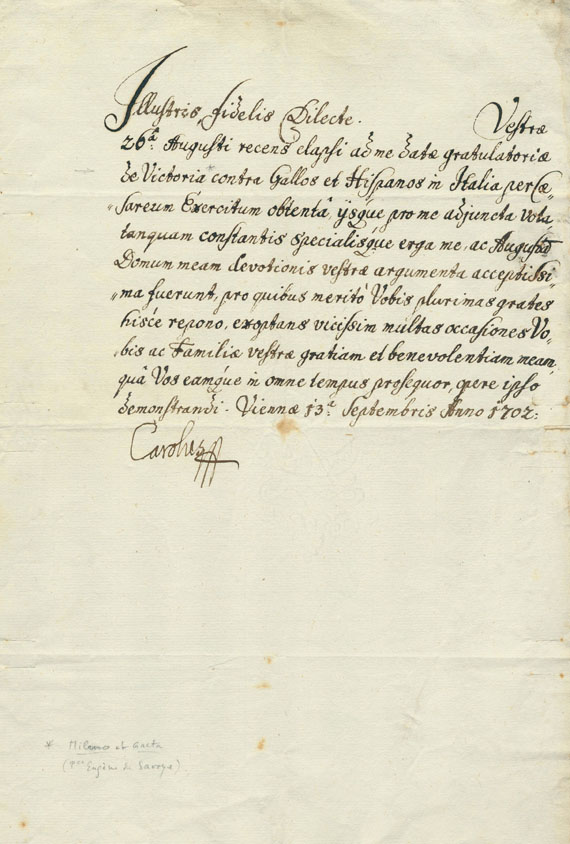 Illustris, fidelis Dilecte. Vestræ
26ᵃ: Augusti recens elapsi ad me datæ gratulatoriæ
de Victoria contra Gallos et Hispanos in Italia per Cæ„
„sareum Exercitum obtentâ, ijsque pro me adjuncta Vota
tanquam constantis specialisque erga me, ac Augustã
Domum meam devotionis vestræ argumenta acceptissi„
„ma fuerunt, pro quibus meritò Vobis plurimas grates
hisce repono, exoptans vicissim multas occasiones Vo„
„bis ac Familiæ vestræ gratiam et benevolentiam meam,
quâ Vos eamque in omne tempus prosequor, opere ipso
demonstrandi. Viennæ 13ᵃ Septembris Anno 1702:
Carolus
* Milano et Gaeta
(Pce Eugène de Savoye)